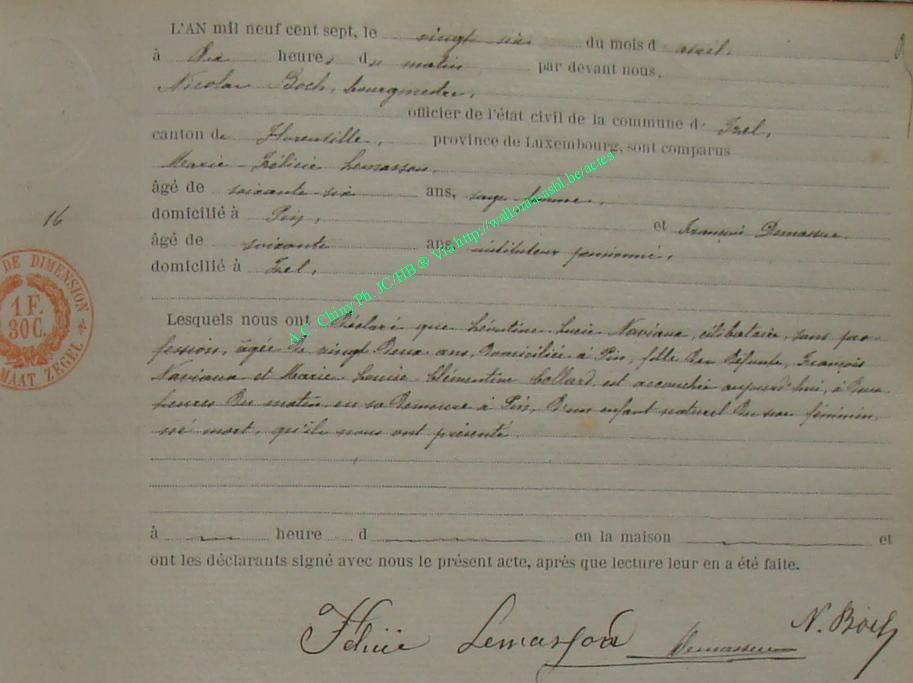 L'AN mil neuf cent sept, le vingt six du mois d avril.
à dix heures du matin par devant nous,
Nicolas Boch, bourgmestre,
officier de l'état civil de la commune d' Izel,
canton de Florenville, province de Luxembourg, sont comparus
Marie-Félicie Lemasson,
âgé de soixante-six ans, sage-femme,
domicilié à Pin, et François Demasseur
âgé de soixante ans instituteur pensionné,
domicilié à Izel,
16
DE DIMENSION
1F.
30C.
MAAT ZEGEL
A.C. Chiny Ph. JC/HB ® Via http://wallonia-asbl.be/actes
Lesquels nous ont déclaré que Léontine Lucie Naviaux, célibataire, sans pro-
fession, âgée de vingt deux ans, domiciliée à Pin, fille des défunts, François
Naviaux et Marie Louise Clémentine Collard est accouchée aujourd'hui, à deux
heures du matin en sa demeure à Pin, d'un enfant naturel du sexe féminin,
né mort, qu'ils nous ont présenté.
à heure d en la maison et
ont les déclarants signé avec nous le présent acte, après que lecture leur en a été faite.
Félicie Lemasson Demasseur N. Boch